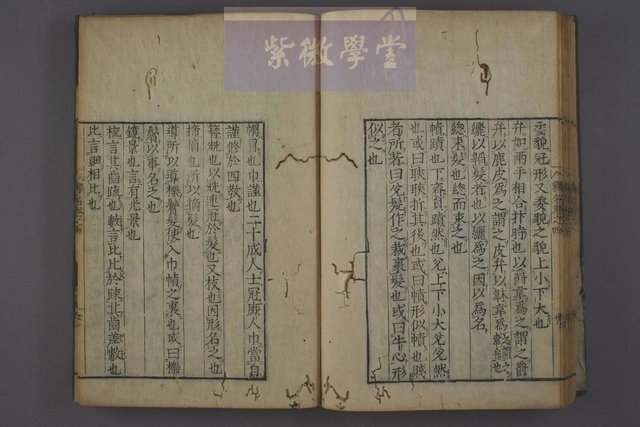 紫微學堂
委貌冠形又委貌之貌上小下大也
弁如兩手相合抃時也以爵韋爲之謂之爵
弁以鹿皮爲之謂之皮弁以韎韋爲之謂之韋弁也
纚以韜髮者也以纚爲之因以爲名
總束髮也總而束之也
幘蹟也下齊眉蹟然也兌上下小大兌兌然
也或曰聅聅折其後也或曰幘形似幘也賤
者所著曰兌髮作之裁裹髮也或曰牛心形
似之也
帽冒也巾謹也二十成人士冠庶人巾當自
謹修於四敎也
簪兓也以兓連冠於髮也又枝也因形名之也
揥摘也所以摘髮也
導所以導櫟鬢髮使入巾幘之裏也或曰櫟
鬢以事名之也
鏡景也言有光景也
梳言其齒疏也數言比比於疏其齒差數也
比言細相比也